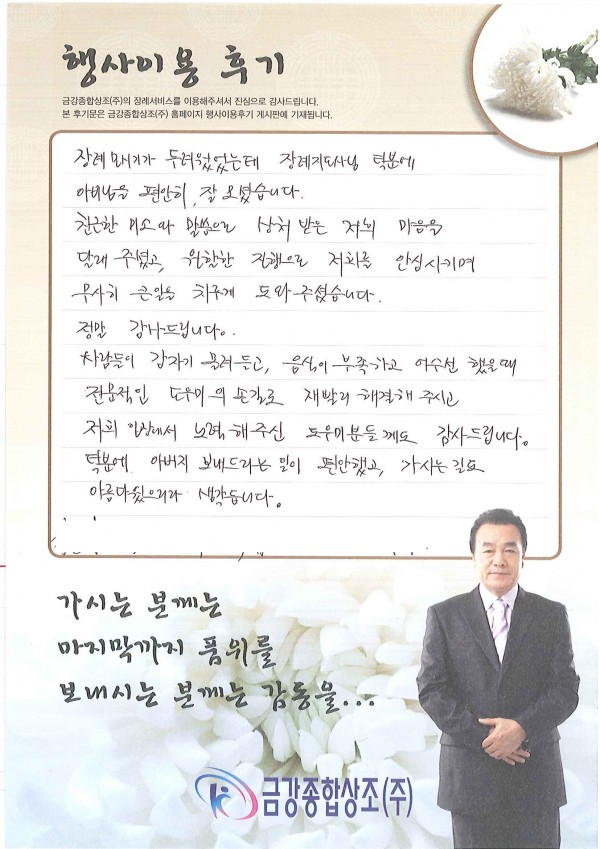 행사이용 후기
금강종합상조(주)의 장례서비스를 이용해주셔서 진심으로 감사드립니다.
본 후기문은 금강종합상조(주) 홈페이지 행사이용후기 게시판에 기재됩니다.
장례 모시기가 두려웠었는데 장례지도사님 덕분에
아버님을 편안히, 잘 모셨습니다.
친근한 미소와 말씀으로 상처 받은 저희 마음을
달래 주셨고, 원활한 진행으로 저희를 안심시키며
무사히 큰일을 치루게 도와주셨습니다.
정말 감사드립니다.
사람들이 갑자기 몰려 들고, 음식이 부족하고 어수선 했을때
전문적인 도우미의 손길로 재빨리 해결해 주시고
저희 입장에서 노력해 주신 도우미분들께도 감사드립니다.
덕분에 아버지 보내드리는 맘이 편안했고, 가시는 길도
아름다웠으리라 생각듭니다.
가시는 분께는
마지막까지 품위를
보내시는 분께는 감동을...
금강종합상조(주)